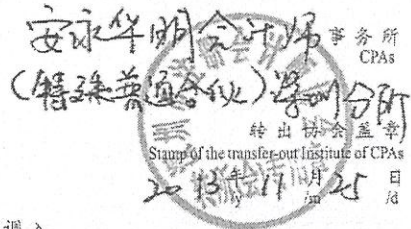 安永华明会计师 事务所
CPAs
(特殊普通合伙)深圳分所
转出协会盖章
Stamp of the transfer-out Institute of CPAs
2013年11月25日
/y /m /d
调入